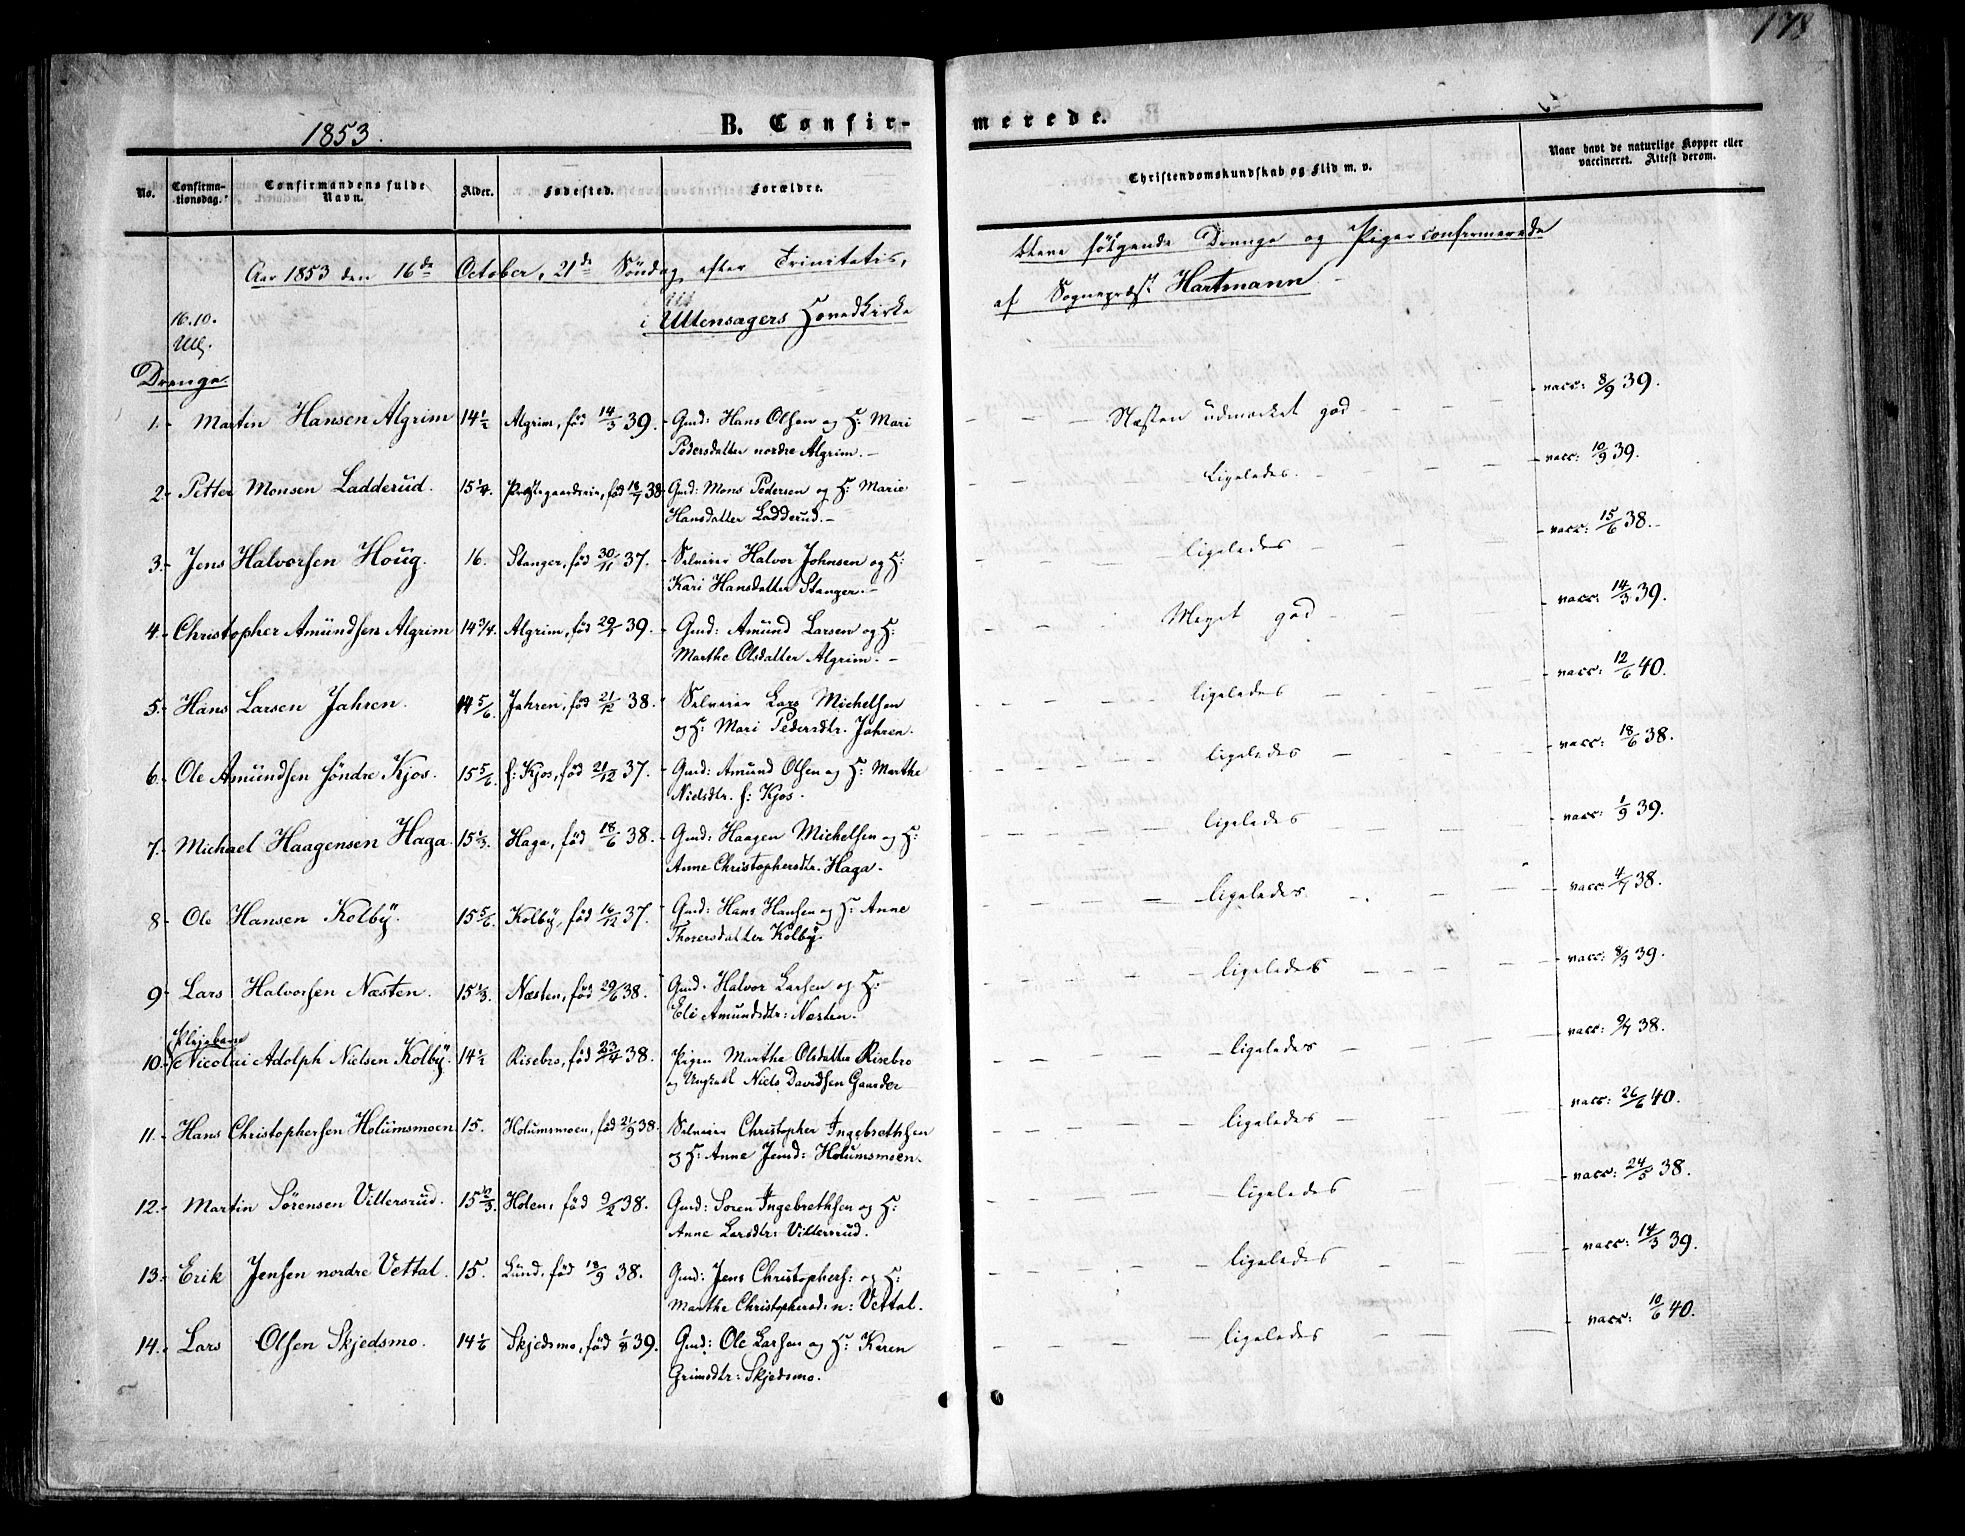 178
1853.
B. Confir-
merede.
No.
Confirma-
tionsdag.
Confirmandens fulde
Navn.
Alder.
Fødested.
Forældre.
Christendomskundskab og Flid m. v.
Naar havt de naturlige Kopper eller
vaccineret. Attest derom.
Aar 1853 den 16de October, 21de Söndag efter Trinitatis,
i Ullensagers Hovedkirke
bleve følgende Drenge og Piger confirmerede
af Sognepræst Hartmann
16.10.
Ull.
Drenge.
1. Martin Hansen Algrim 14 1/2 Algrim, föd 14/3 39. Gmd: Hans Olsen og H: Mari
Pedersdatter nordre Algrim.
Næsten udmærket god vacc: 8/9 39.
2. Petter Monsen Ladderud. 15 1/4. Præstegaardseie, föd 18/7 38 Gmd: Mons Pedersen og H: Marie
Hansdatter Ladderud.
Ligeledes. vacc: 10/9 39.
3. Jens Halvorsen Houg. 16. Stanger, föd 30/11 37. Selveier Halvor Johnsen og H:
Kari Hansdatter Stanger.
ligeledes vacc: 15/6 38.
4. Christopher Amundsen Algrim 14 3/4. Algrim, föd 39. Gmd: Amund Larsen og H:
Marthe Olsdatter Algrim.
Meget god vacc: 14/3 39.
5. Hans Larsen Jahren. 14 5/6. Jahren, föd 21/12 38. Selveier Lars Michelsen
og H: Mari Pedersdtr. Jahren.
ligeledes vacc: 12/6 40.
6. Ole Amundsen söndre Kjos. 15 5/6. s: Kjos, föd 21/12 37. Gmd: Amund Olsen og H: Marthe
Nielsdtr. s: Kjos.
ligeledes vacc: 18/6 38.
7. Michael Haagensen Haga. 15 1/3. Haga, föd 18/6 38. Gmd: Haagen Michelsen og H:
Anne Christophersdtr. Haga.
ligeledes vacc: 1/9 39.
8 Ole Hansen Kolby. 15 5/6. Kolby, föd 16/12 37. Gmd: Hans Hansen og H: Anne
Thorersdatter Kolby
ligeledes. vacc: 4/7 38.
9 Lars Halvorsen Næsten. 15 1/3. Næsten, föd 29/6 38. Gmd. Halvor Larsen og H:
Eli Amundsdtr: Næsten.
ligeledes vacc: 8/9 39.
Plejebarn
10. Nicolai Adolph Nielsen Kolby. 14 1/2 Risebro, föd 23/4 38. Pigen Marthe Olsdatter Risebro
og Ungkarl Niels Davidsen Gaarder
ligeledes vacc: 9/7 38.
11. Hans Christophersen Holumsmoen 15. Holumsmoen, föd 21/9 38. Selveier Christopher Ingebrethsen
og H: Anne Jensd: Holumsmoen.
ligeledes vacc: 26/6 40.
12. Martin Sörensen Villersrud. 15 2/3. Holen, föd 9/2 38. Gmd: Soren Ingebrethsen og H:
Anne Larsdtr: Villersrud.
ligeledes vacc: 24/5 38.
13. Erik Jensen nordre Vettal. 15. Lund, föd 18/9 38. Gmd: Jens Christophers: og H:
Marthe Christophersd: n: Vettal.
ligeledes vacc: 14/3 39.
14. Lars Olsen Skjedsmo. 14 1/6 Skjedsmo, föd 1/8 39. Gmd: Ole Larsen og H: Karen
Grimsdtr: Skjedsmo.
ligeledes vacc: 10/6 40.